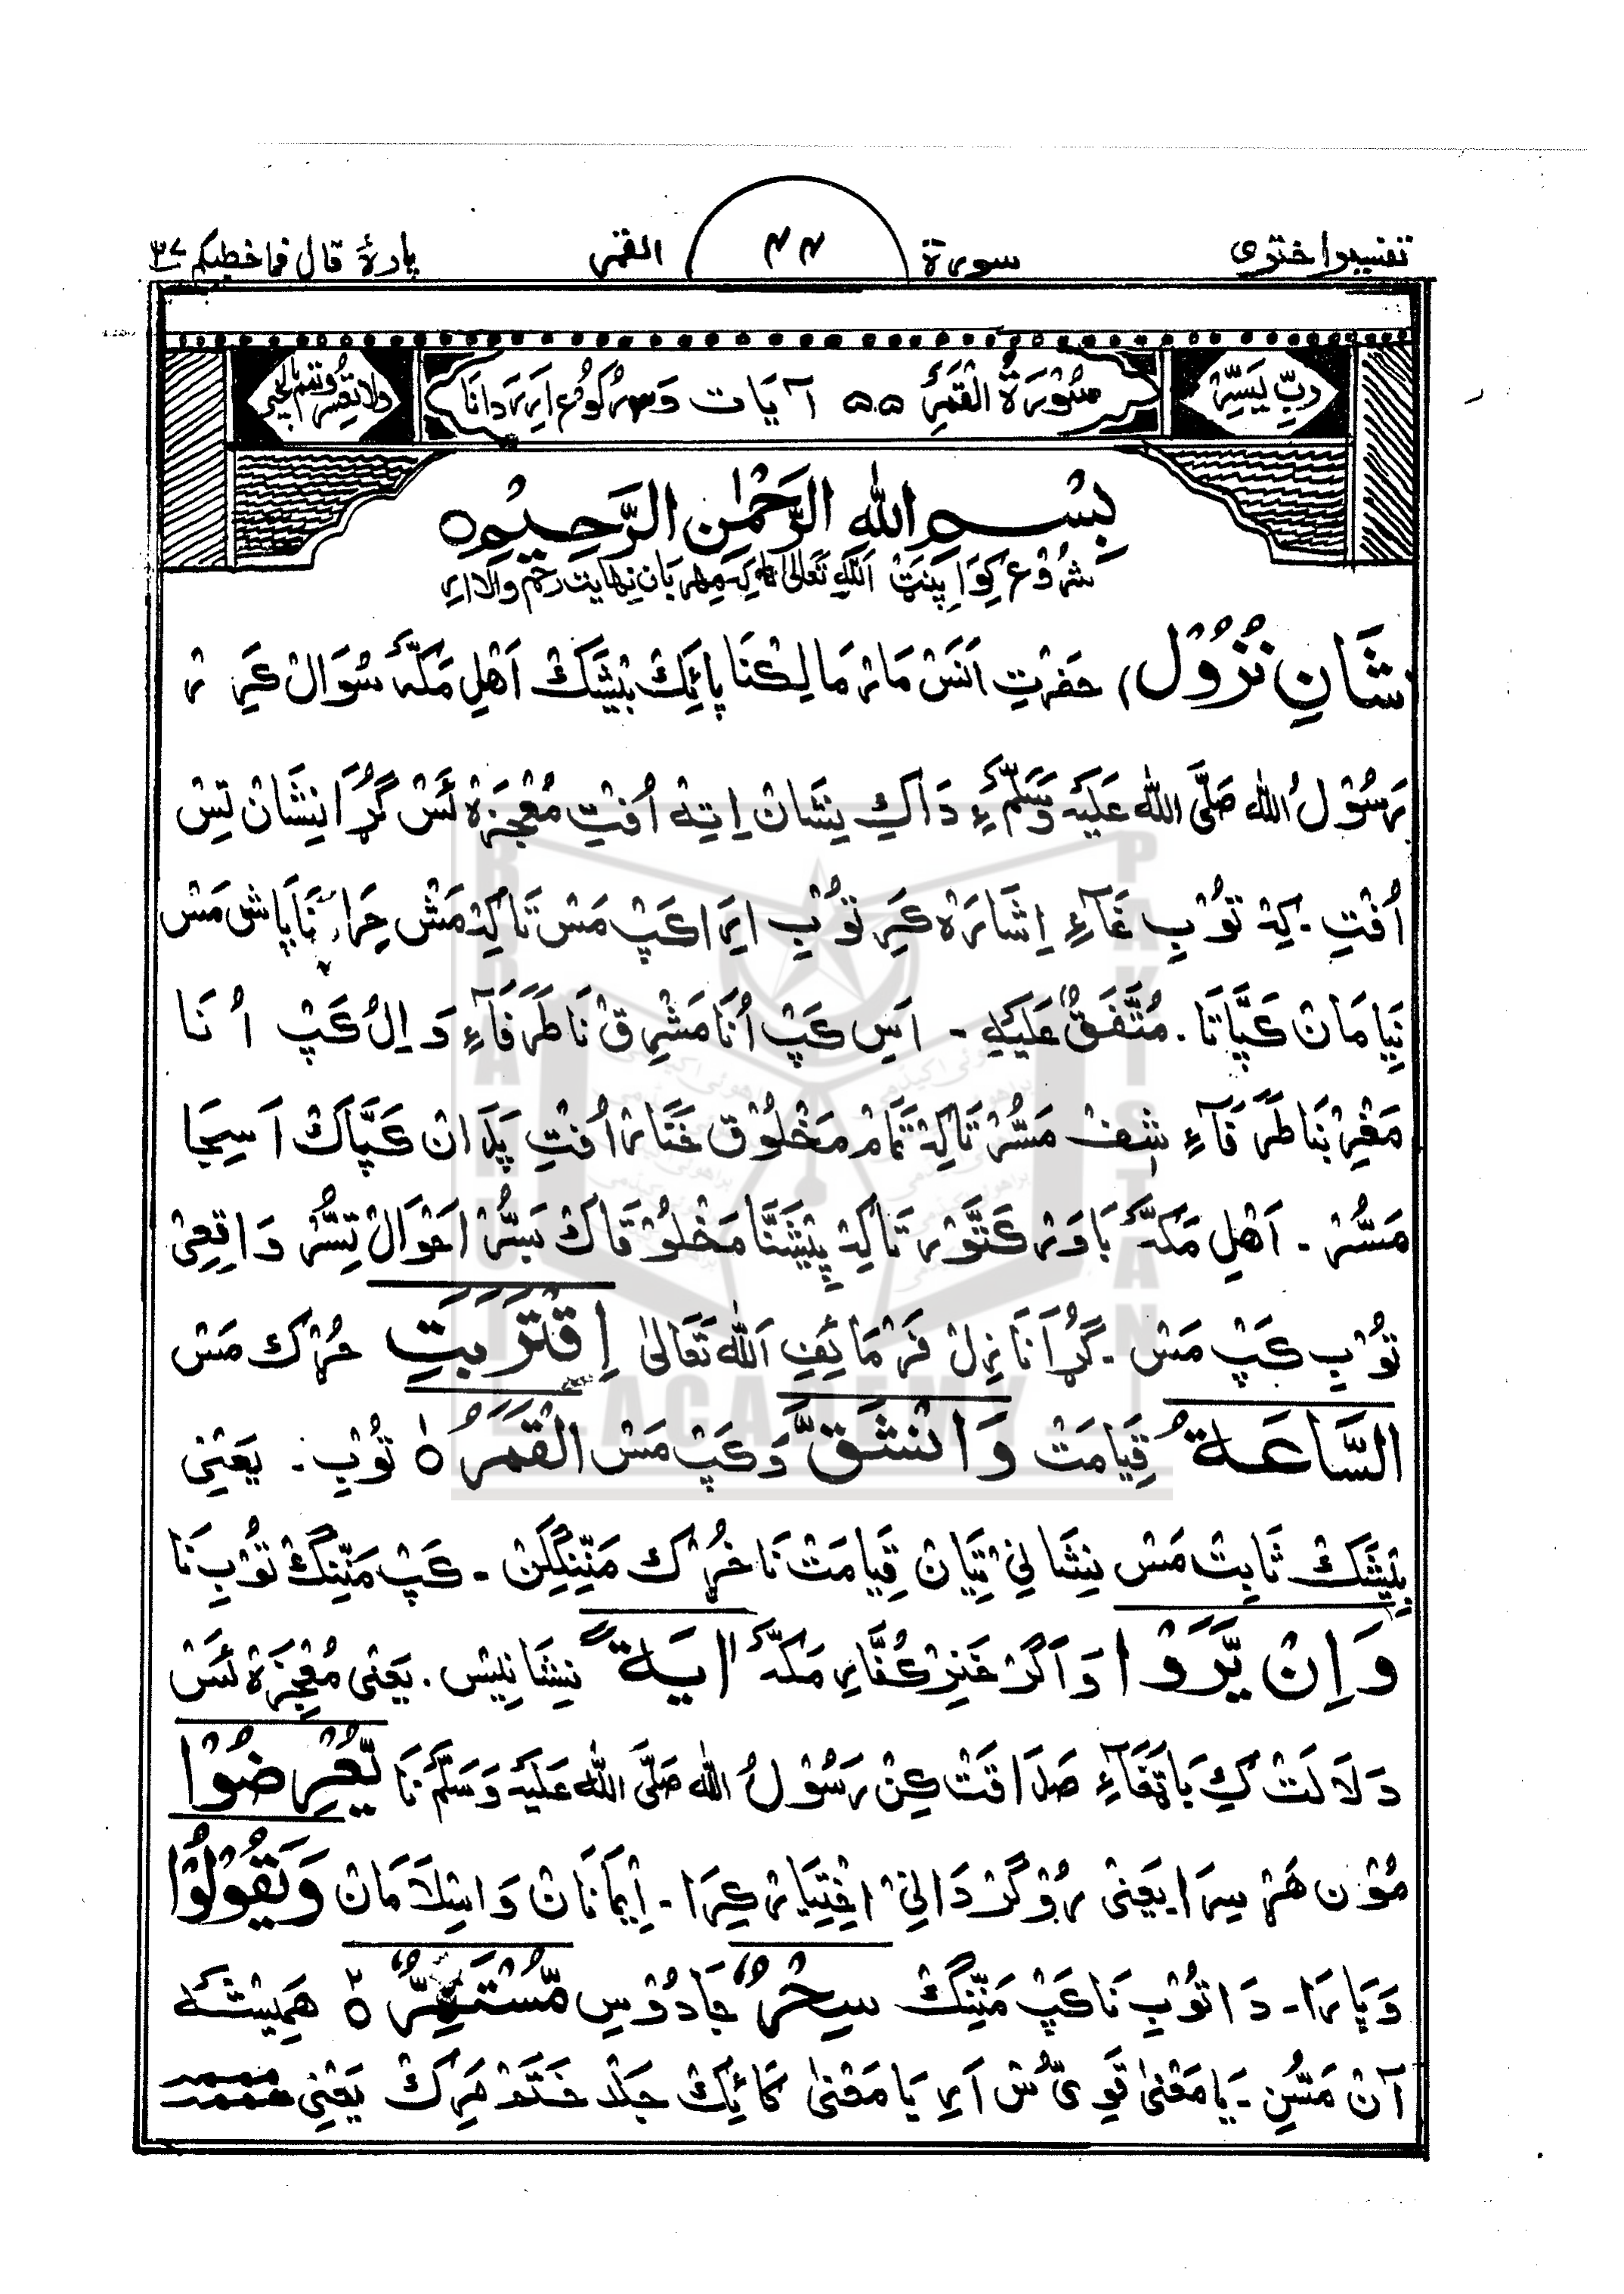 تفسیر اختری سورة ۴۴ القمر پارهٔ قال فما خطبکم ۲۷
ربِّ یَسِّرْ سُوْرَةُ الْقَمَرِ ۵۵ آیَات وَ سہ رُکُوْع اَرِیر دَانَا وَلَا تُعَسِّرْ وَتَمِّمْ بِالْخَیْر
بِسْمِ اللهِ الرَّحْمٰنِ الرَّحِیْمِ ٥
شُرُوْع کِوَا پِنَٹ اَللهِ تَعَالٰی نَا کِہ مِہرْبَان نِہَایت رَحم وَالَا ارِ
شَانِ نُزُوْل) حَضرْتِ اَنَسْ مَارْ مَالِکْنَا پَائِکْ بَیْشَکْ اَهْلِ مَکَّہ سُوَالْ کَرِ رْ
رَسُوْلُ الله صَلَّی الله عَلَیْہِ وَسَلَّمَ ءِ دَاکِ نِشَانْ اِتِہْ اُفْتِ مُعْجِزَہْ ئَسْ گُڑَا نِشَانْ تِسْ
اُفْتِ ۔ کِہْ تُوْبِ غَآءِ اِشَارَہْ کَرِ تُوْبِ اِرَا کَپْ مَسْ تَاکِہْ مَشْ حِرَا نَا پَاش مَسْ
نِیَامَانْ کَپَّاتَا ۔ مُتَّفَقٌ عَلَیْہِ ۔ اَسِ کَپْ اُنَا مَشْرِقْ نَا طَرَفَآءِ وَ اِلُ کَپْ اُ نَا
مَغْرِبْنَا طَرَفَآءِ شِفْ مَسُّرْ تَاکِہْ تَمَامْ مَخْلُوْق خَنَارْ اُفْتِ پِدَانْ کَپَّاکْ اَسِجَا
مَسُّرْ ۔ اَهْلِ مَکَّہ بَاوَرْ کَتَّوْرْ تَاکِہْ پِیْشَنَّا مَخْلُوْقَاکْ بَسُّرْ اَحْوَالْ تِسُّرْ وَاقِعِیْ
تُوْبِ کَپْ مَسْ ۔ گُڑَا نَازِلْ فَرْمَائِفِ اَللّٰہ تَعَالٰی اِقْتَرَبَتِ خُرْک مَسْ
السَّاعَةُ قِیَامَتْ وَانْشَقَّ وَ کَپْ مَسْ الْقَمَرُ ٥ تُوْبِ ۔ یَعْنِی
بِیْشَکْ ثَابِتْ مَسْ نِشَانِیْ تِیَانْ قِیَامَتْ نَا خُرْک مَنِّنْگِنْ ۔ کَپْ مَنِّنْگْ تُوْبِ نَا
وَاِنْ یَّرَوْا وَ اَگَرْ خَنِرْ کُفَّارِ مَکَّہ اٰیَةً نِشَانِیْس ۔ یَعْنِی مُعْجِزَہْ ئَسْ
دَلَالَتْ کِ بَاتْفَآءِ صَدَاقَتْ کِنْ رَسُوْلُ الله صَلَّی الله عَلَیْہِ وَسَلَّمَ نَا یُعْرِضُوْا
مُوْن هَرْ سِرَا یَعْنِی رُوْگَرْدَانِیْ اخْتِیَارْ کِرَا ۔ اِیْمَانَانْ وَ اِسْلَامَانْ وَیَقُوْلُوْا
وَ پَارَا ۔ دَا تُوْبِ نَا کَپْ مَنِّنْگ سِحْرٌ جَادُوْسِ مُّسْتَمِرٌّ ٢ هَمِیْشَہ
آنْ مَسُّنِ ۔ یَا مَعْنٰی قَوِیُّسْ اَرِ یَا مَعْنٰی کَائِکْ جَلْد خَتَمْ مَرِکْ یَعْنِی